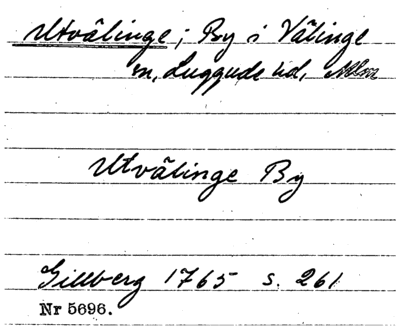 Utvälinge; By i Välinge
sn, Luggude hd, Mlm
Utvälinge By
Gillberg 1765 s. 261
Nr 5696.